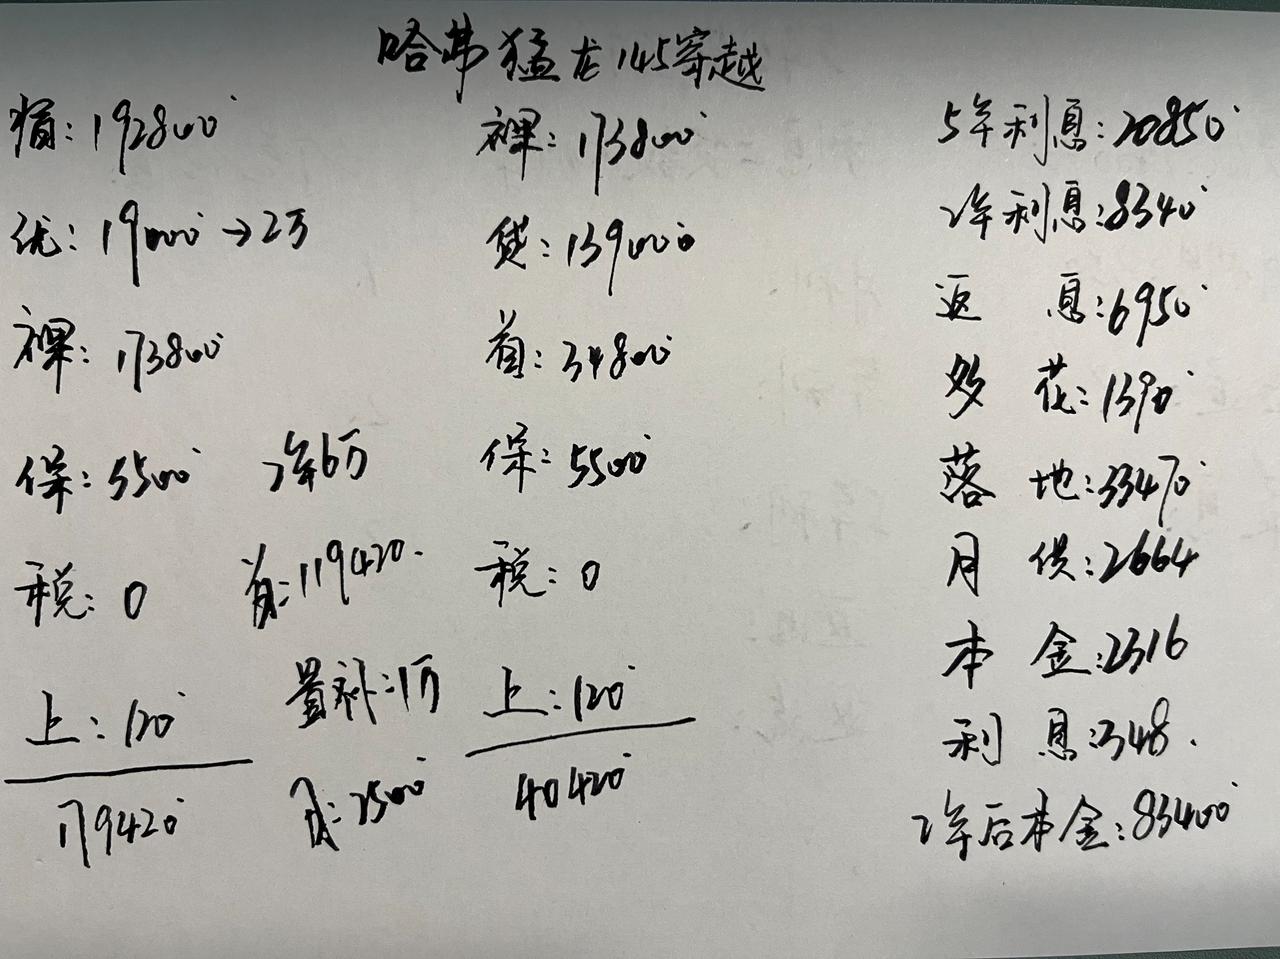 哈弗猛龙145穿越
指: 192800
优: 19000→2万
裸: 173800
保: 5500
税: 0
上: 120
179420
2年6万
首: 119420.
置补: 1万
月: 2500
裸: 173800
贷: 139000
首: 34800
保: 5500
税: 0
上: 120
40420
5年利息: 20850
2年利息: 8340
返 息: 6950
多 花: 1390
落 地: 33470
月 供: 2664
本 金: 2316
利 息: 348.
2年后本金: 83400